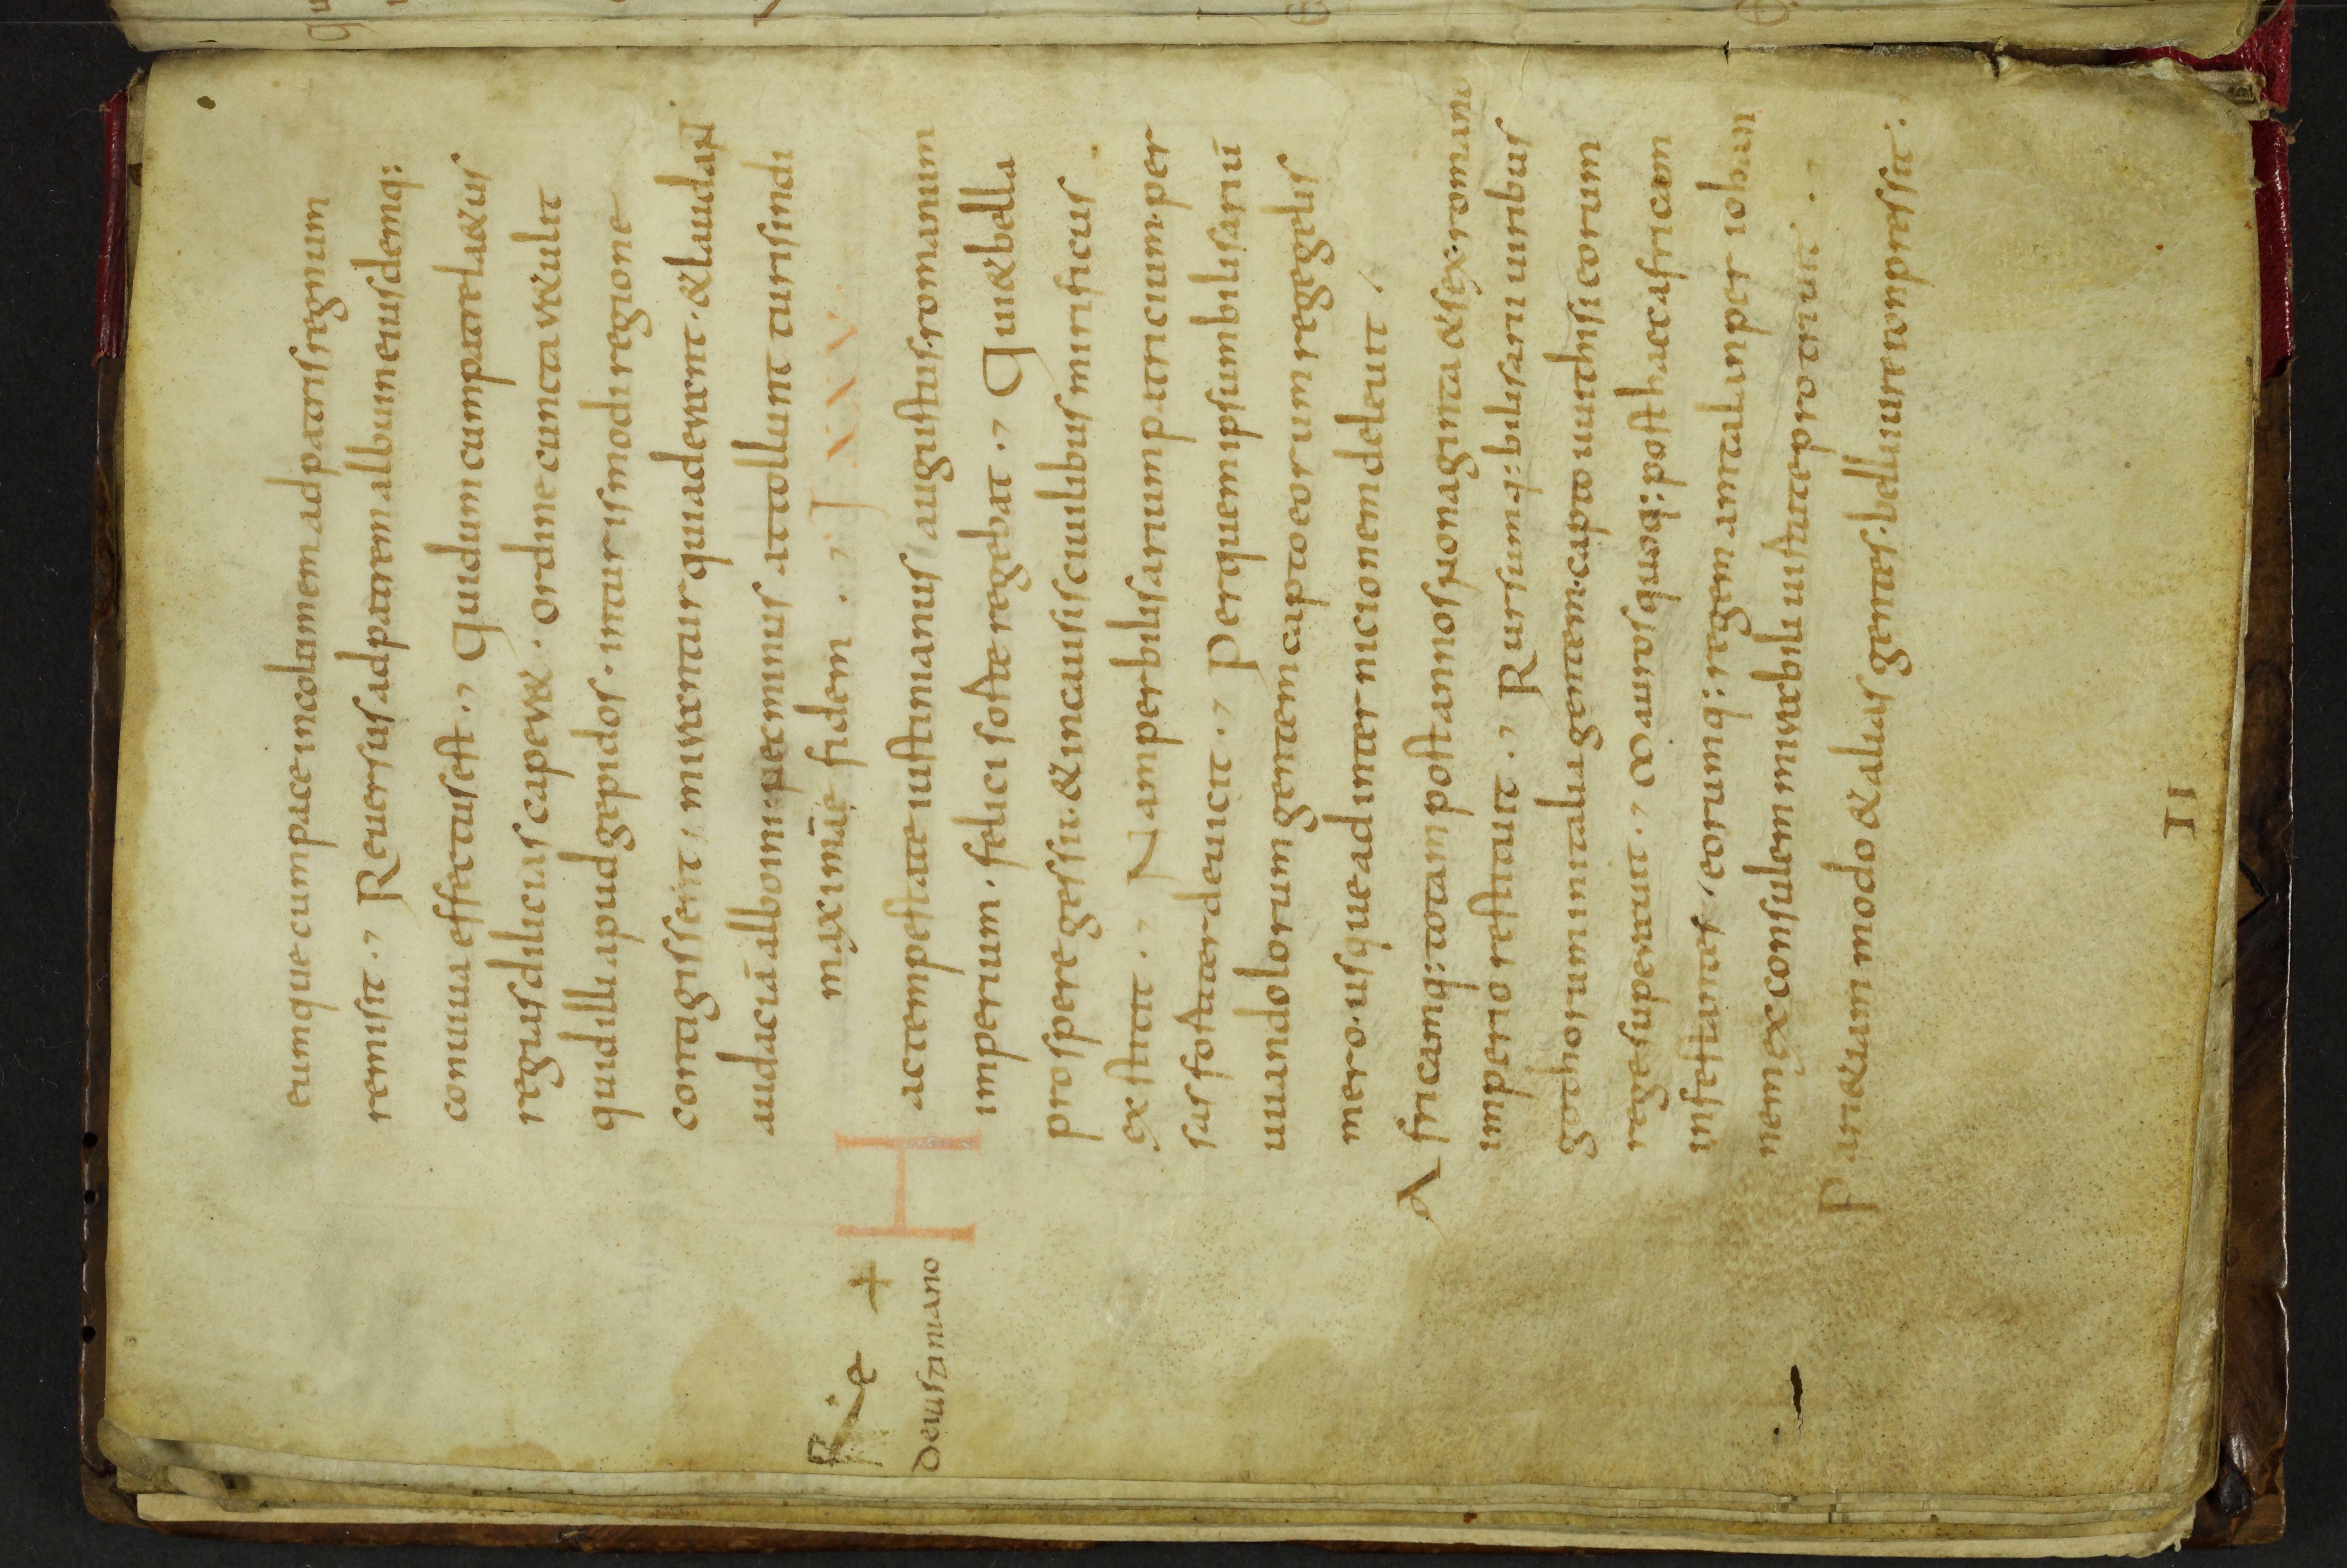 eumque cum pace incolumem ad patris regnum
remisit. Reuersus ad patrem albuin eiusdemq:
conuiua effectus est. Qui dum cum patre laetus
regias dilicias caperet. ordine cuncta retulit
quid illi apud gepidos. in turismodi regione
contagissent, mirentur qui aderent. & laudant
audaciā alboini. nec minus attollunt turisindi
maximāe fidem. XXV
Hac tempestate iustinianus augustus. romanum
imperium. felici sorte regebat. Qui & bella
prospere gessit. & in causis ciuilibus mirificus
exstitit. Nam per bilisarium patricium. per
sas fortiter deuicit. Per quem ipsum bilisariū
uuandolorum gentem capto eorum rege gelis
mero. usque ad internicionem deleuit,
Africamq: totam post annos nonaginta & sex. romano
imperio restituit. Rursumq: bilisarii uiribus
gothorum in italia gentem. capto uuithisi corum
rege superauit. Mauros quoq: post haec africam
infestantes, eorumq: regem amtalan per iohan
nem ex consulem mirabili uirtute protriuit.
Pari etiam modo & alias gentes. belli iure conpressit.
De iustiniano
II